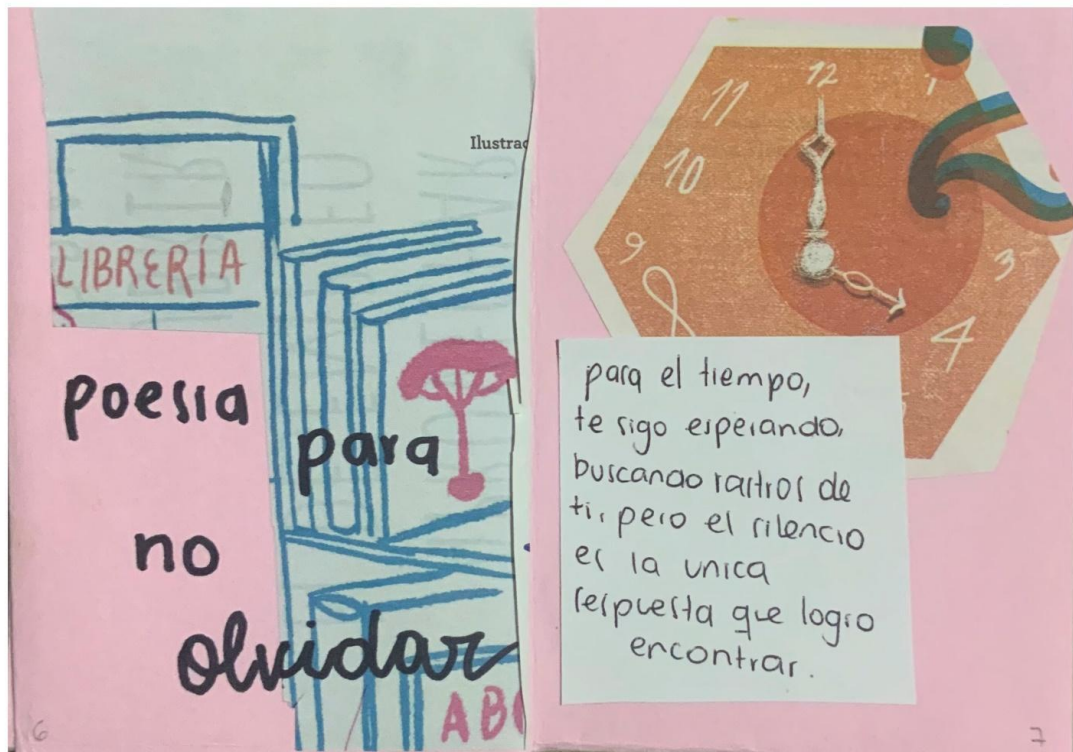 Ilustrac
LIBRERÍA
poesia
para
no
olvidar
ABC
6
12
11
1
10
9
3
4
para el tiempo,
te sigo esperando,
buscando rastros de
ti, pero el silencio
es la unica
respuesta que logro
encontrar.
7